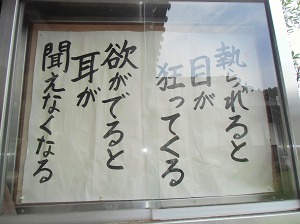 執られると
目が
狂ってくる
欲がでると
耳が
聞えなくなる